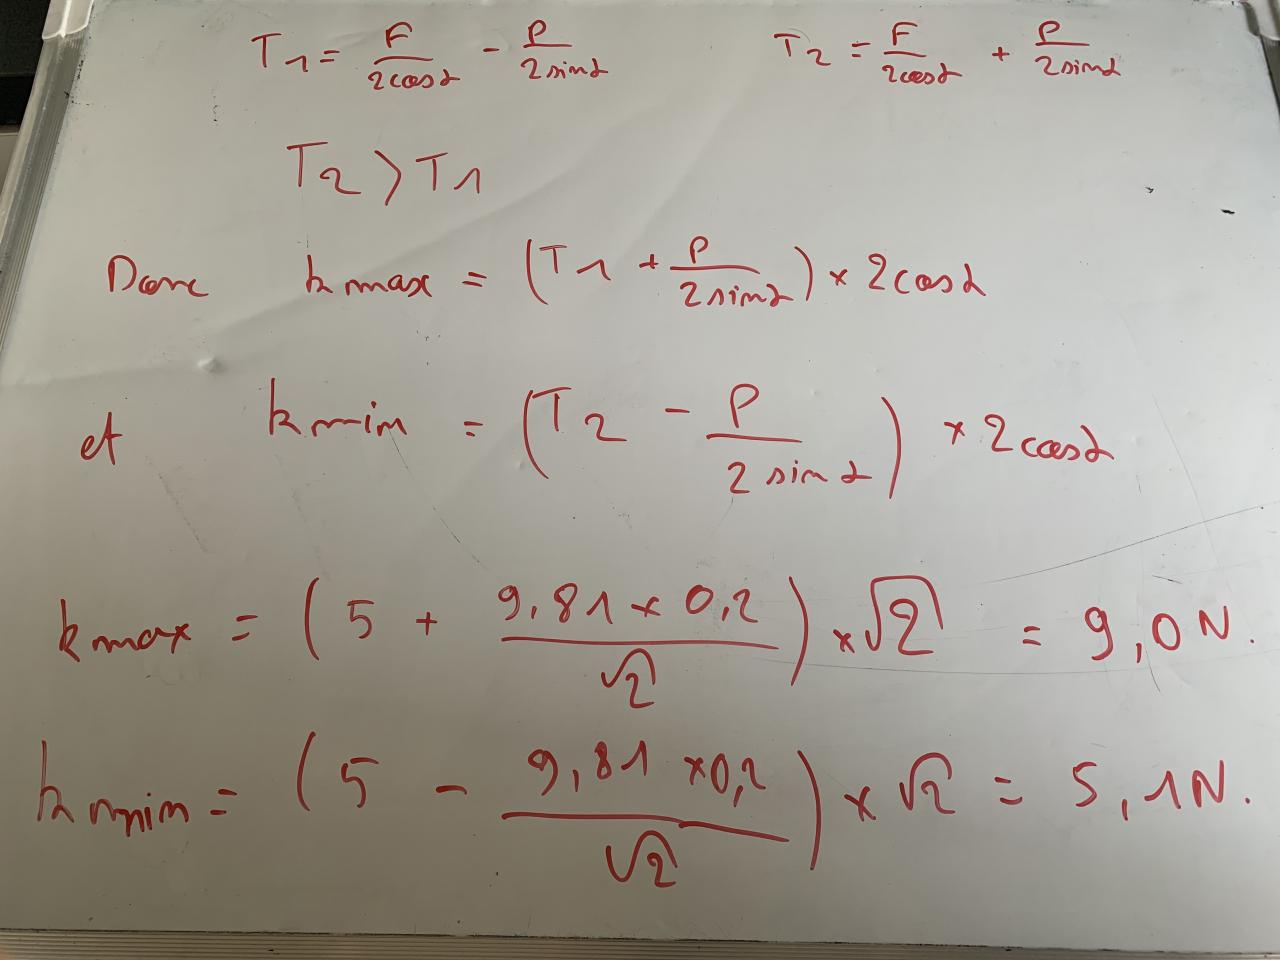 T1 = F/(2cosα) - P/(2sinα)    T2 = F/(2cosα) + P/(2sinα)
T2 > T1
Donc k max = (T1 + P/(2sinα)) × 2cosα
et k min = (T2 - P/(2sinα)) × 2cosα
k max = (5 + (9,81 × 0,2)/√2) × √2 = 9,0 N.
k min = (5 - (9,81 × 0,2)/√2) × √2 = 5,1 N.